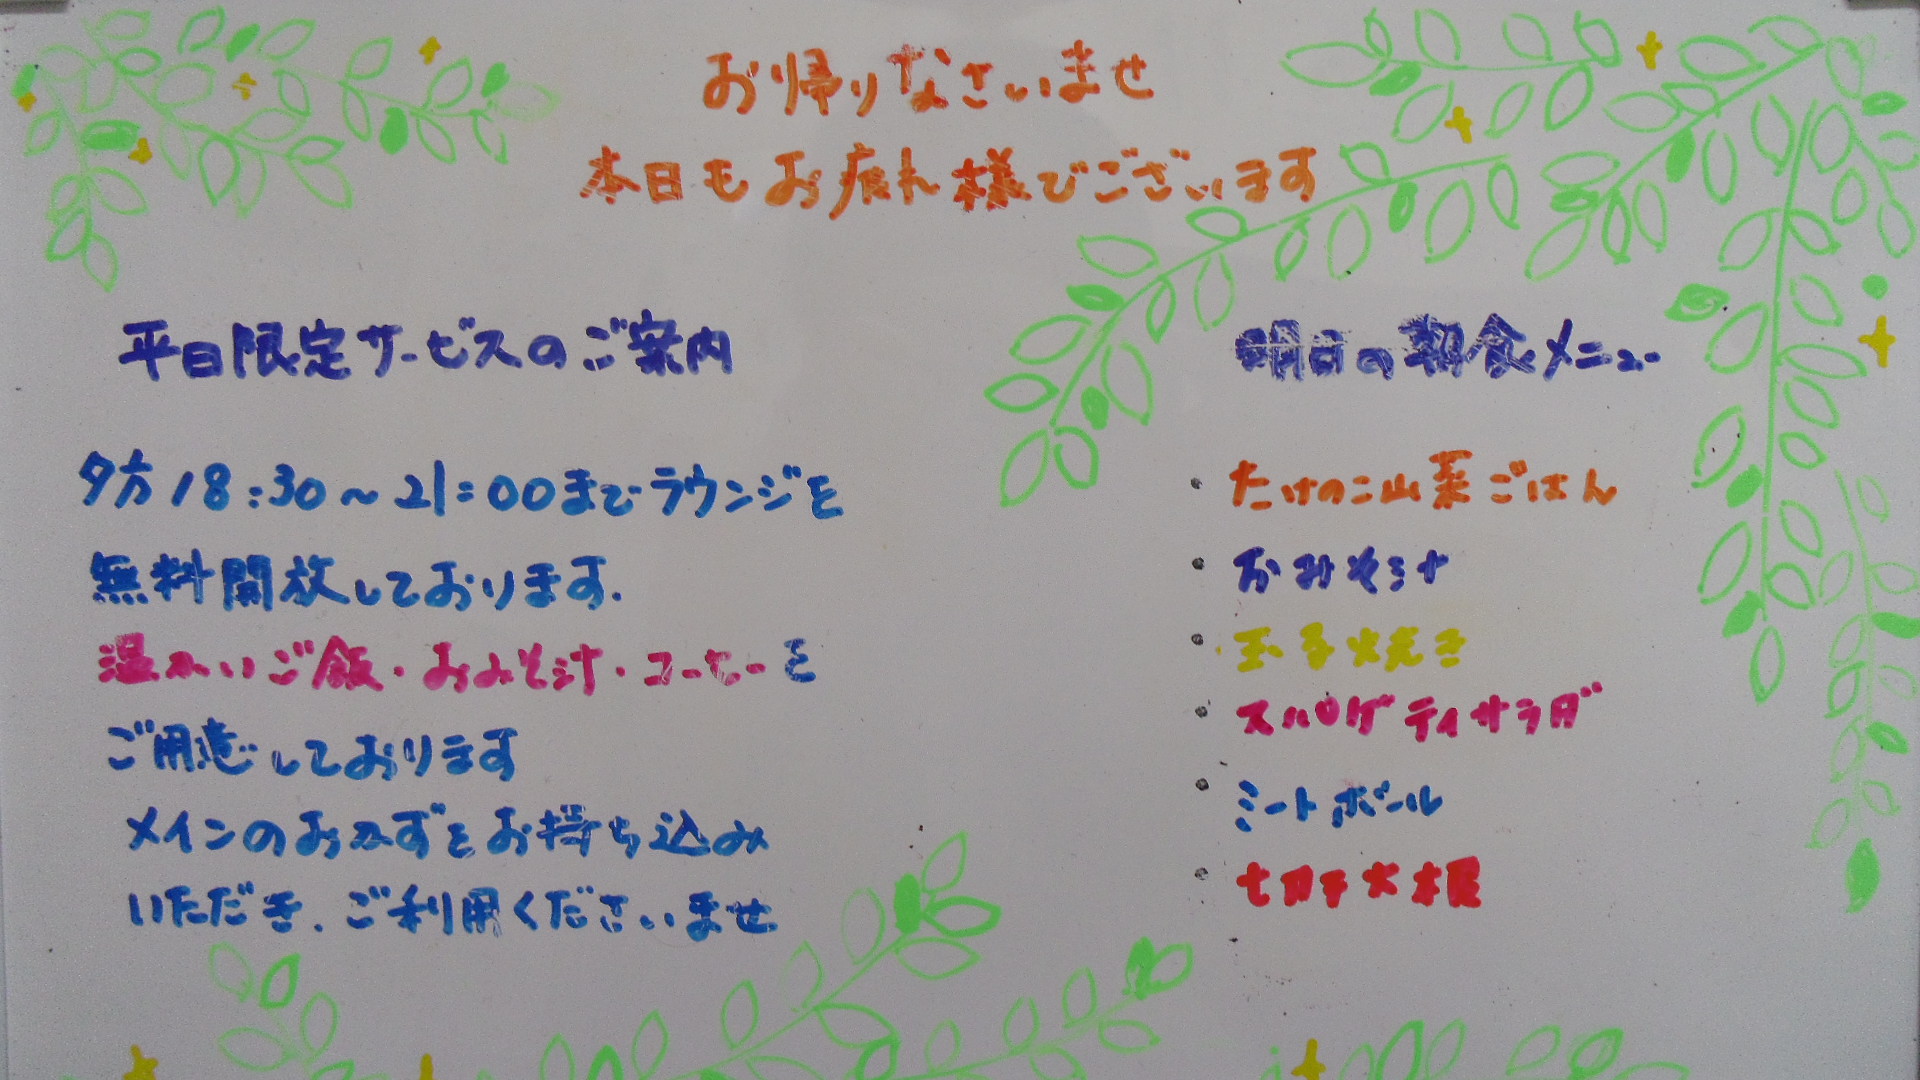 お帰りなさいませ
本日もお疲れ様でございます
平日限定サービスのご案内
夕方18:30～21:00までラウンジを
無料開放しております.
温かいご飯・おみそ汁・コーヒーを
ご用意しております
メインのおかずをお持ち込み
いただき.ご利用くださいませ
明日の朝食メニュー
・たけのこ山菜ごはん
・おみそ汁
・玉子焼き
・スパゲティサラダ
・ミートボール
・切干大根